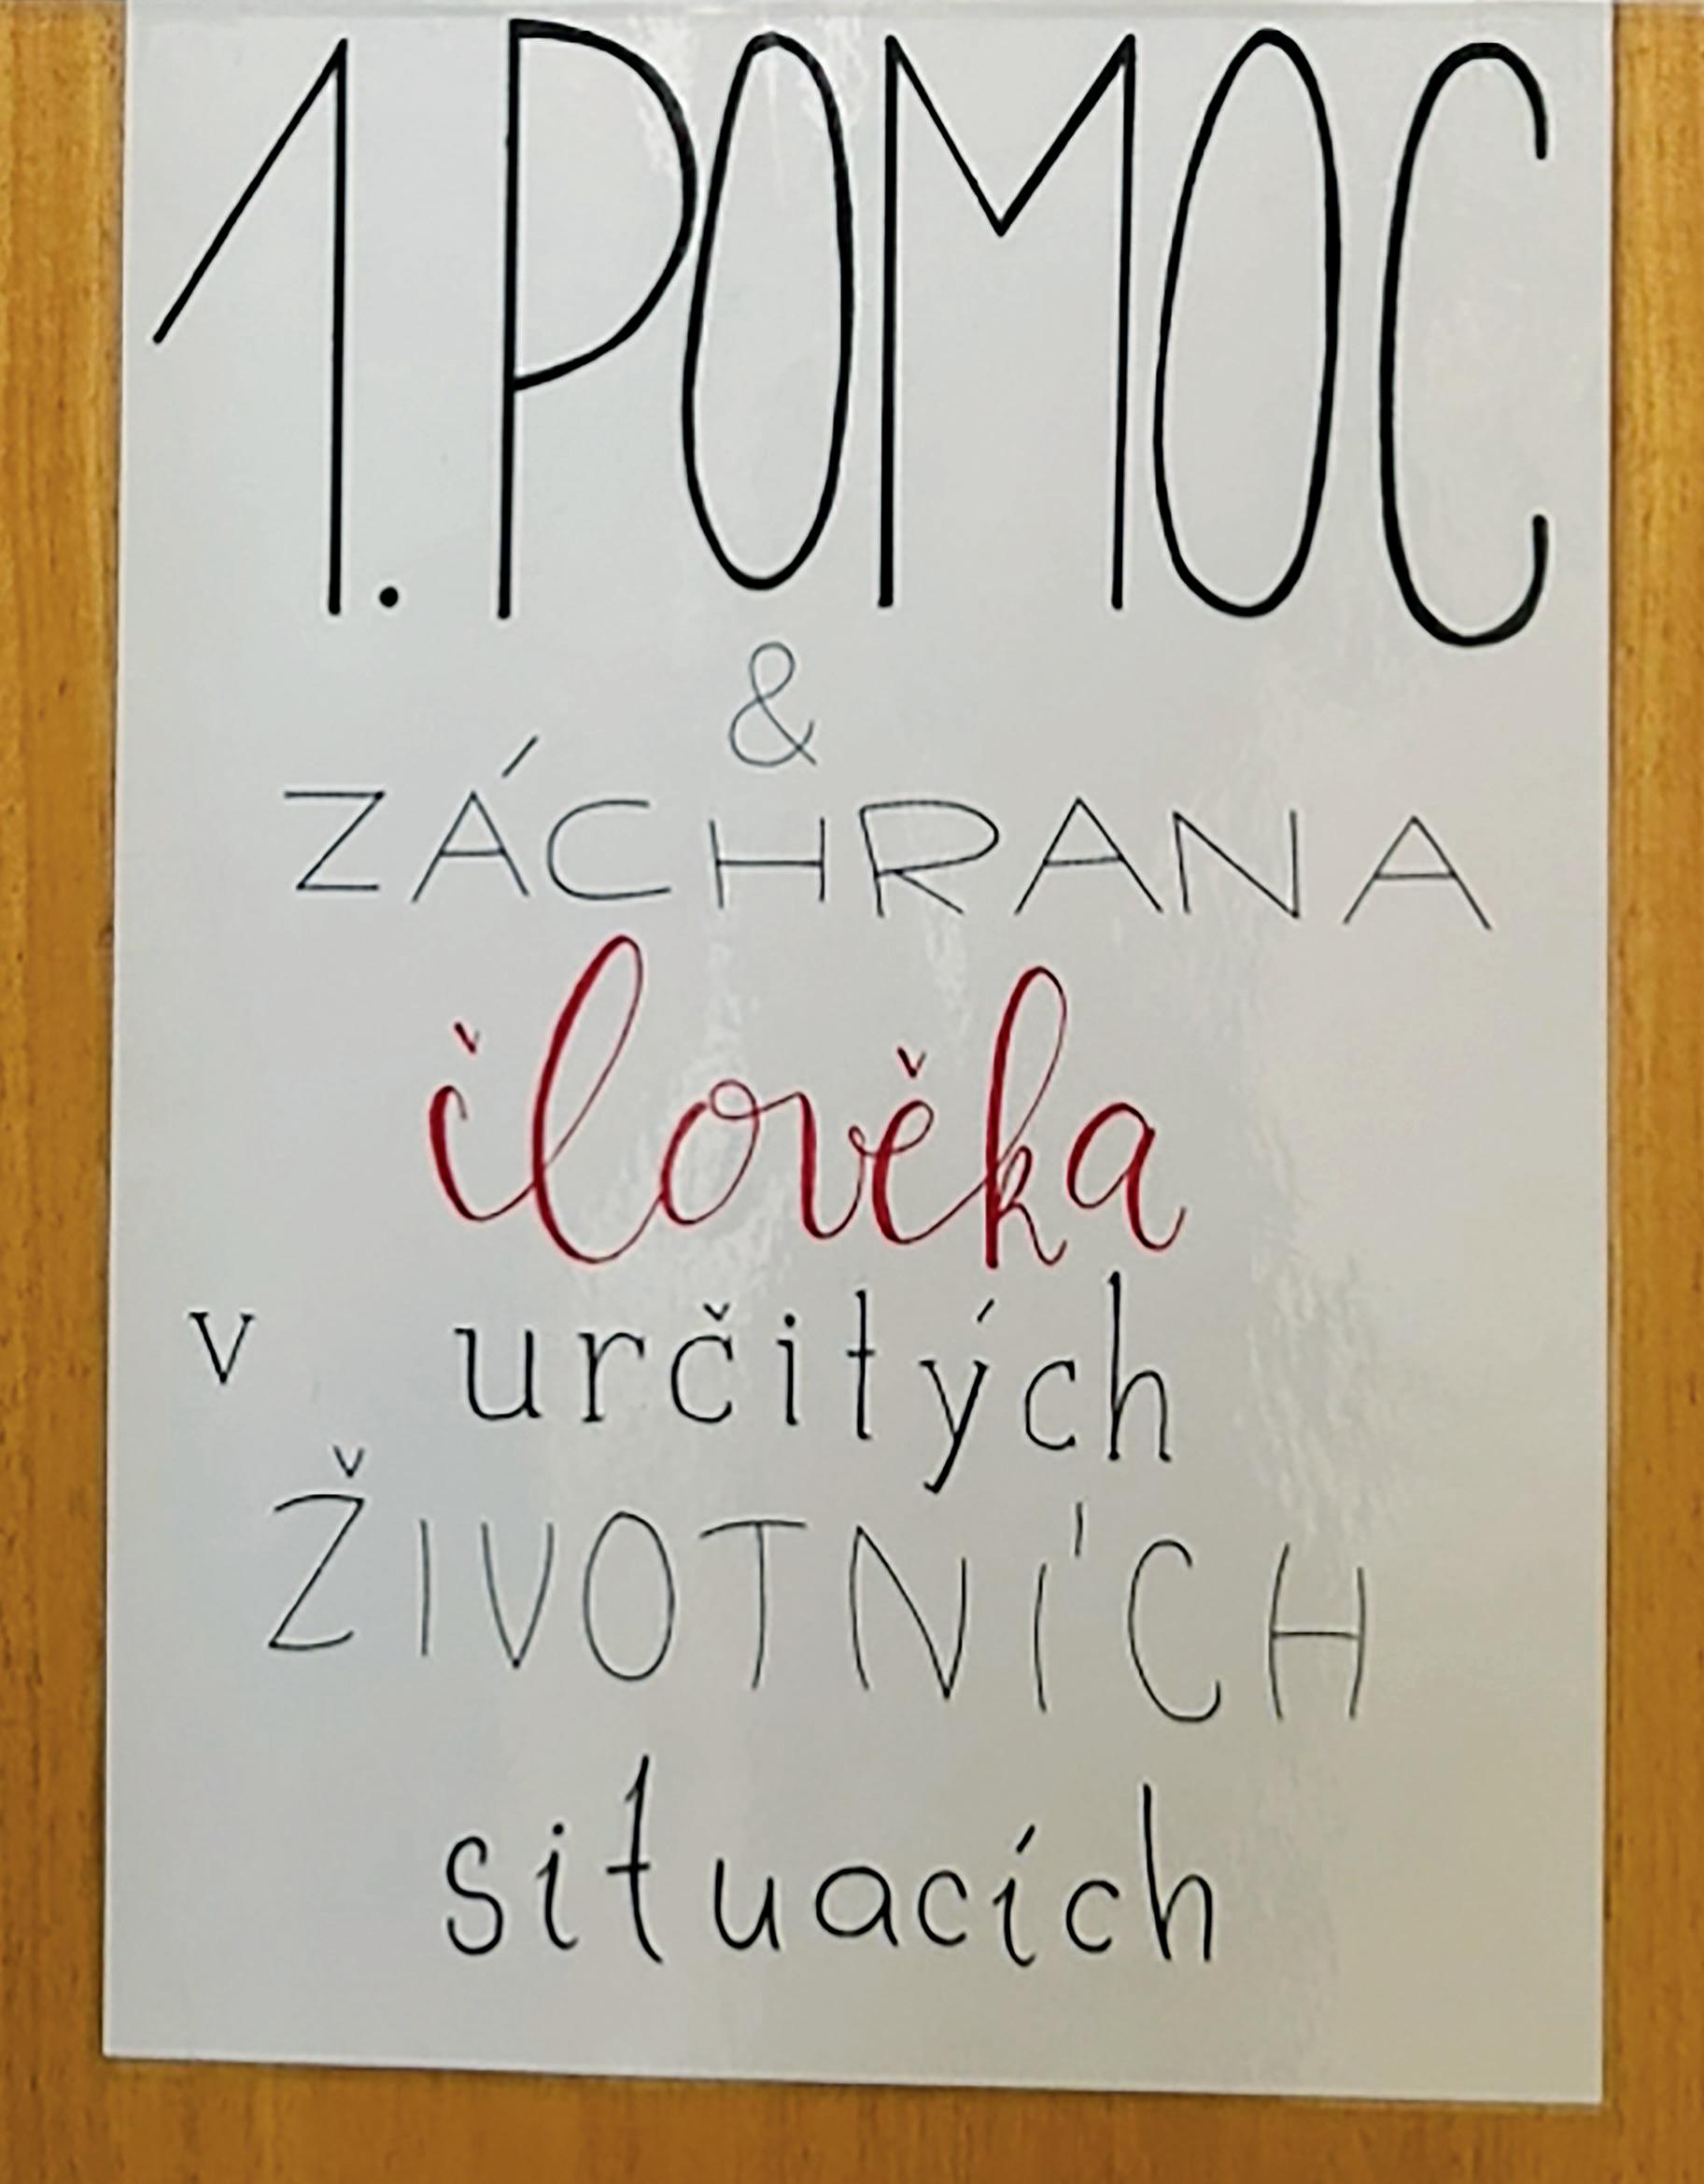 1. POMOC
&
ZÁCHRANA
člověka
v určitých
ŽIVOTNÍCH
situacích